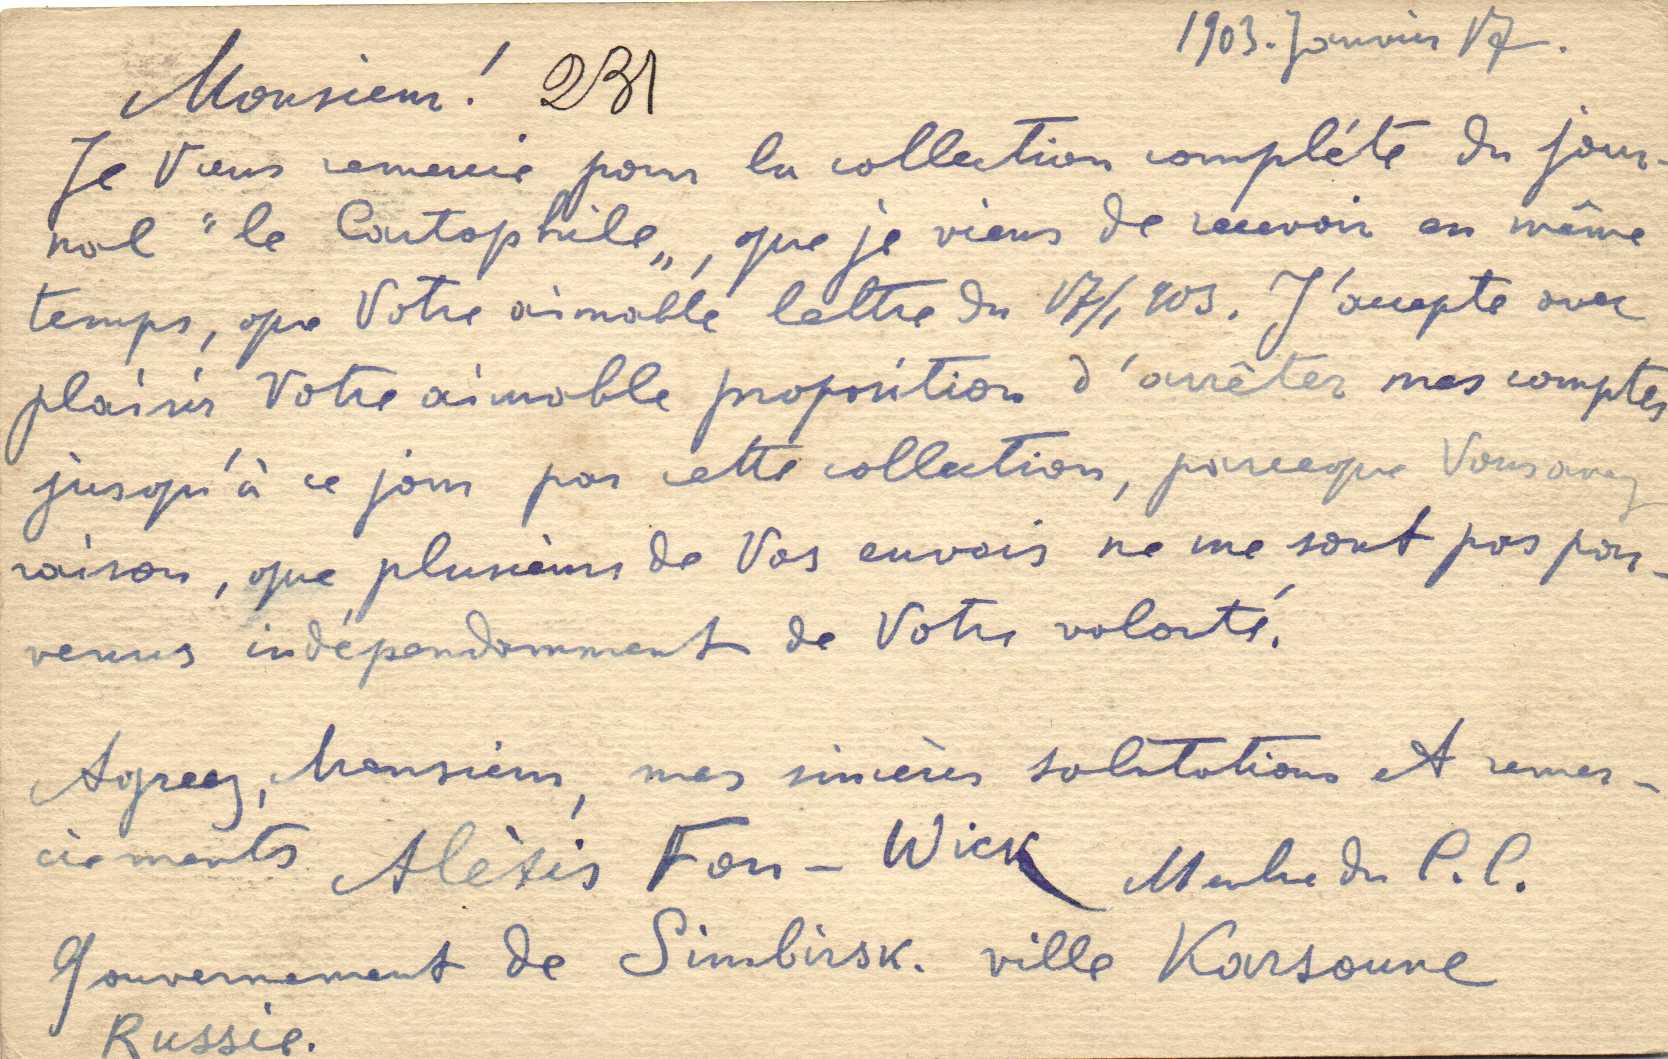 1903. Janvier 17.
Monsieur! 231
Je Vous remercie pour la collection compléte du jour-
nal "le Cartophile„, que je viens de recevoir en même
temps, que Votre aimable lettre du 17/1 903. J'accepte avec
plaisir Votre aimable proposition d'arrêter mes comptes
jusqu'à ce jour par cette collection, parceque Vous avez
raison, que plusieurs de Vos envois ne me sont pas par-
venus indépendamment de Votre volonté.
Agreez, Monsieur, mes sincères salutations et remer-
ciements Alèxis Fon-Wick Membre du C.C.
Gouvernement de Simbirsk. ville Karsoune
Russie.